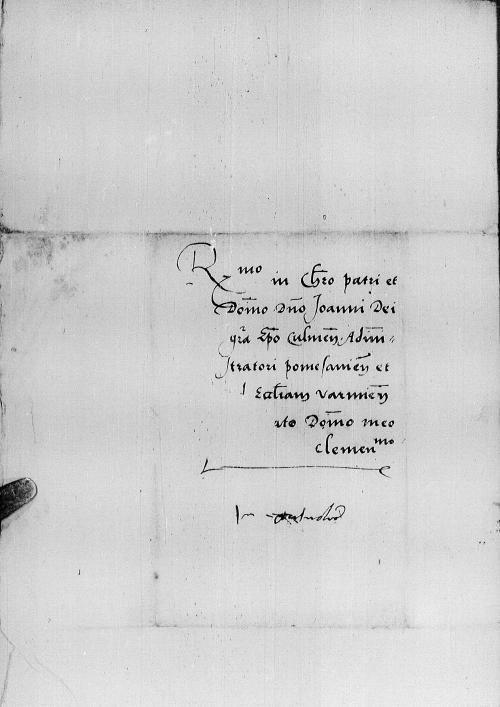 Rmo in Chro patri et
Domo Dno Joanni Dei
gra Epo Culmen Admi-
stratori pomesanien et
Eccliam varmien
Domo meo
clemenmo
In